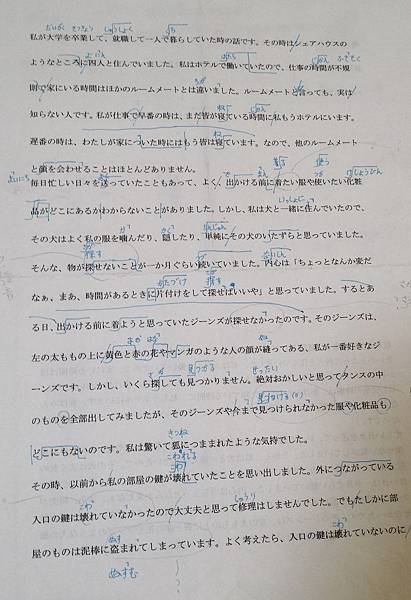 私が大学を卒業して、就職して一人で暮らしていた時の話です。その時はシェアハウスの
ようなところに四人と住んでいました。私はホテルで働いていたので、仕事の時間が不規
則で家にいる時間はほかのルームメートとは違いました。ルームメートと言っても、実は
知らない人です。私が仕事で早番の時は、まだ皆が寝ている時間に私もうホテルにいます。
遅番の時は、わたしが家についた時にはもう皆は寝ています。なので、他のルームメート
と顔を会わせることはほとんどありません。
毎日忙しい日々を送っていたこともあって、よく、出かける前に着たい服や使いたい化粧
品がどこにあるかわからないことがありました。しかし、私は犬と一緒に住んでいたので、
その犬はよく私の服を噛んだり、隠したり、単純にその犬のいたずらと思っていました。
そんな、物が探せないことが一か月ぐらい続いていました。内心は「ちょっとなんか変だ
なぁ、まあ、時間があるときに片付けをして探せばいいや」と思っていました。するとあ
る日、出かける前に着ようと思っていたジーンズが探せなかったのです。そのジーンズは、
左の太ももの上に黄色と赤の花やマンガのような人の顔が縫ってある、私が一番好きなジ
ーンズです。しかし、いくら探しても見つかりません。絶対おかしいと思ってタンスの中
のものを全部出してみましたが、そのジーンズや今まで見つけられなかった服や化粧品も
どこにもないのです。私は驚いて狐につままれたような気持でした。
その時、以前から私の部屋の鍵が壊れていたことを思い出しました。外につながっている
入口の鍵は壊れていなかったので大丈夫と思って修理はしませんでした。でもたしかに部
屋のものは泥棒に盗まれてしまっています。よく考えたら、入口の鍵は壊れていないのに
ぬすむ